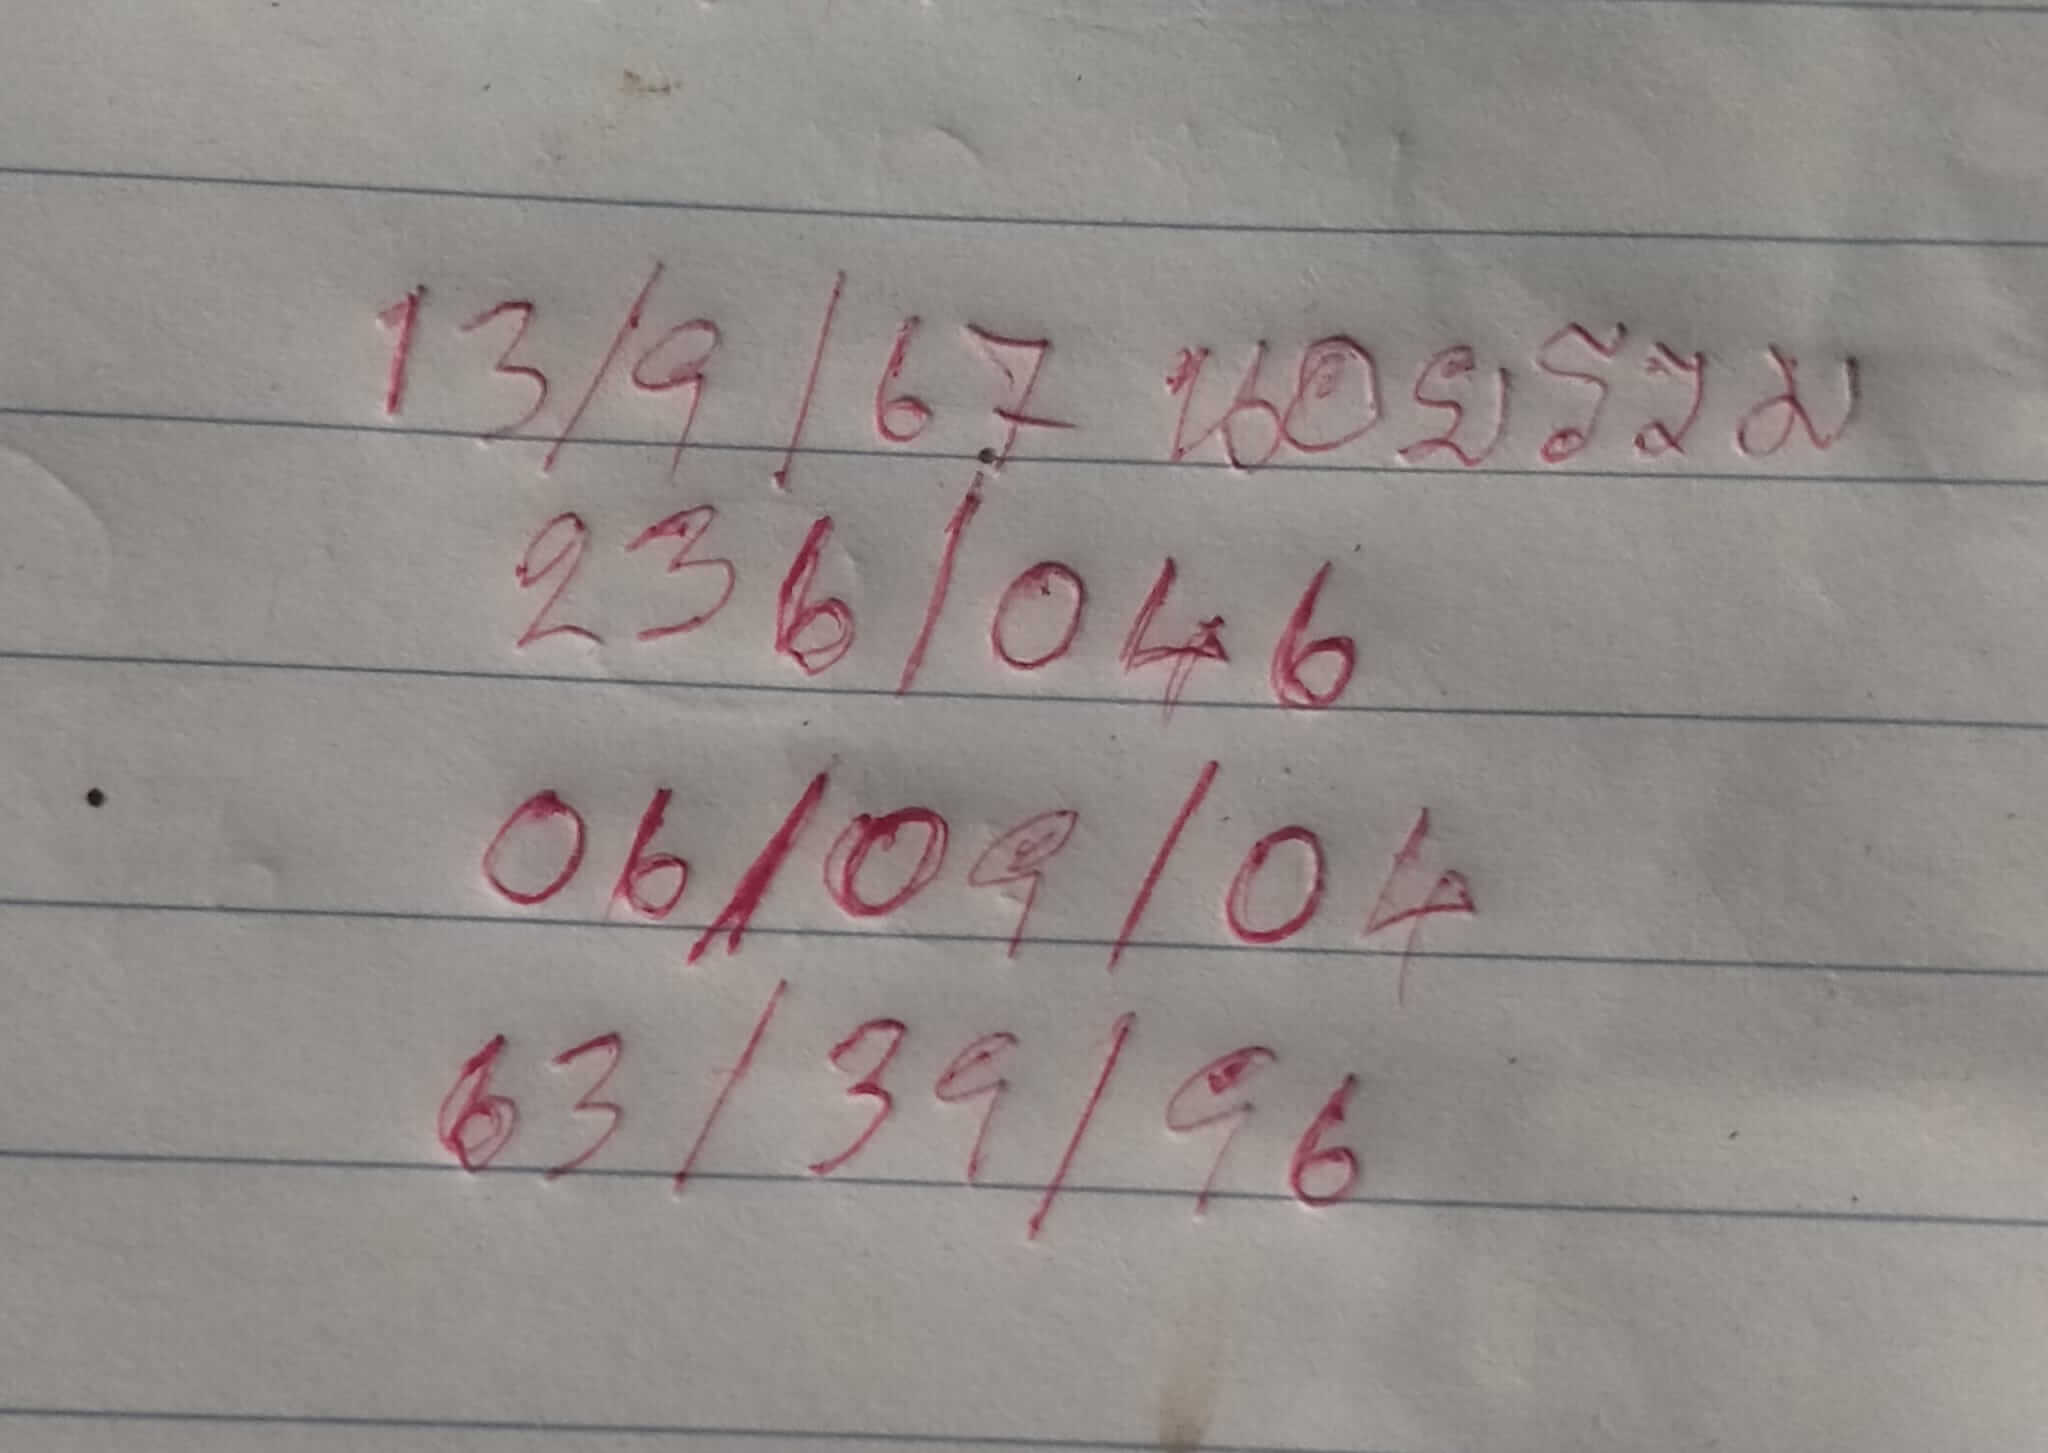 13/9/67 นอยรวม
236/046
06/09/04
63/39/96